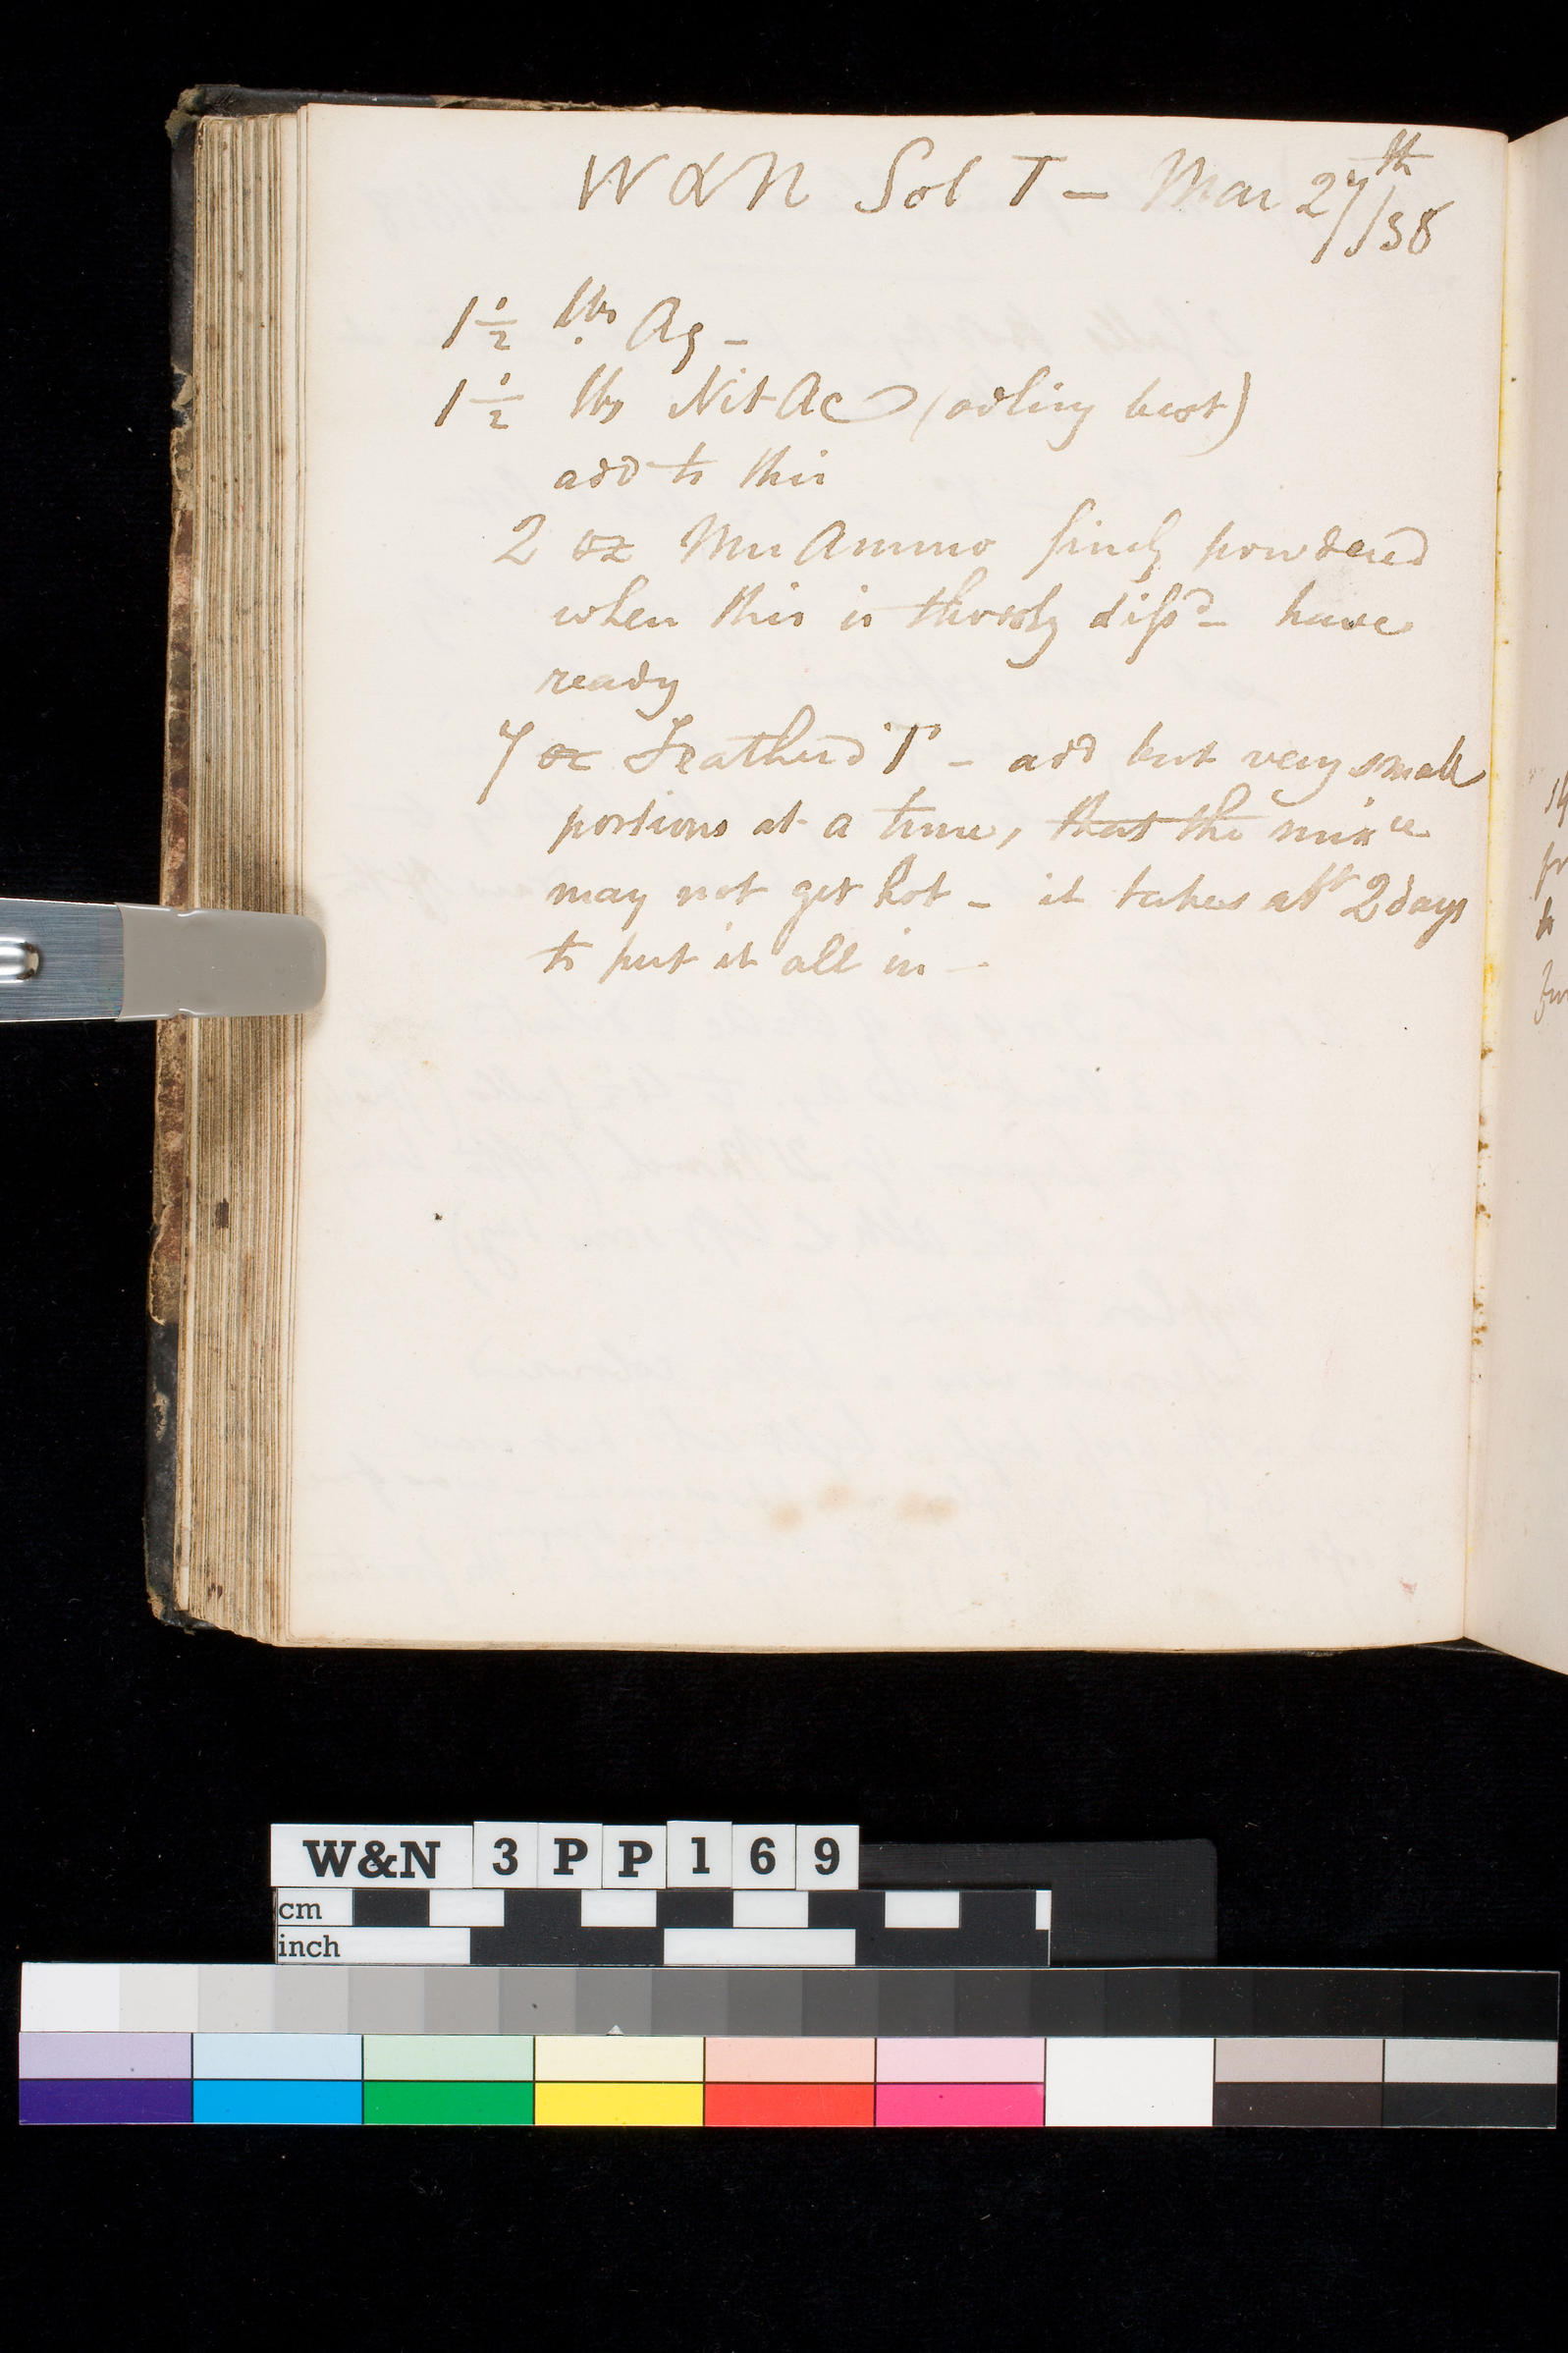 W & N Sol T - Mar 27th/38
1 1/2 lbs Aq -
1 1/2 lbs Nit Ac (odling best)
add to this
2 oz Mu Ammo finely powdered
when this is thoroly dissd - have
ready
7 oz Featherd T - add but very small
portions at a time, that the mixre
may not get hot - it takes abt 2 days
to put it all in -
W&N 3PP169
cm
inch